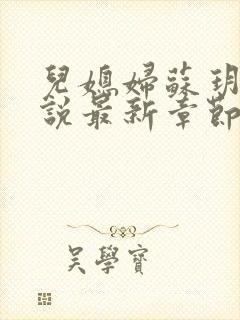 兒媳婦蘇玥
說最新章節
吳學寶